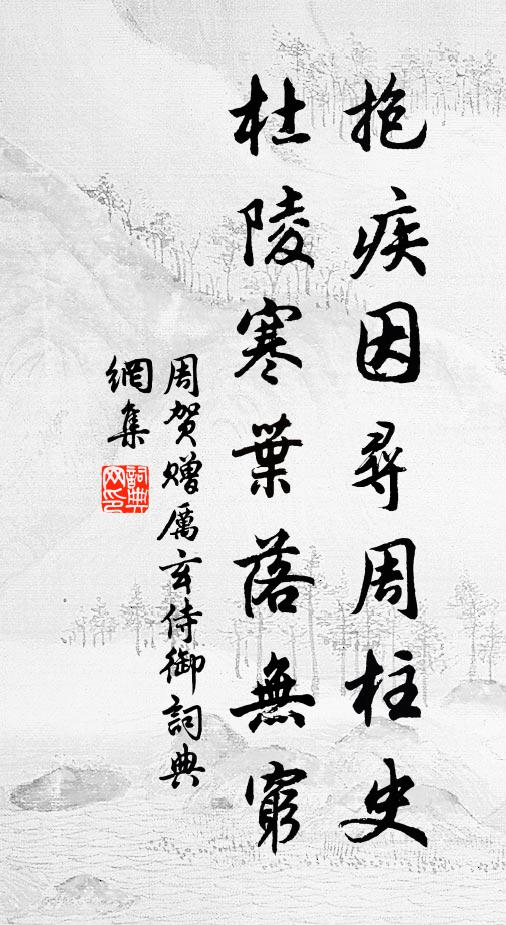 抱疾因尋周柱史
杜陵寒葉落無窮
周贺赠厲玄侍御詞典
網集
詞典
网印